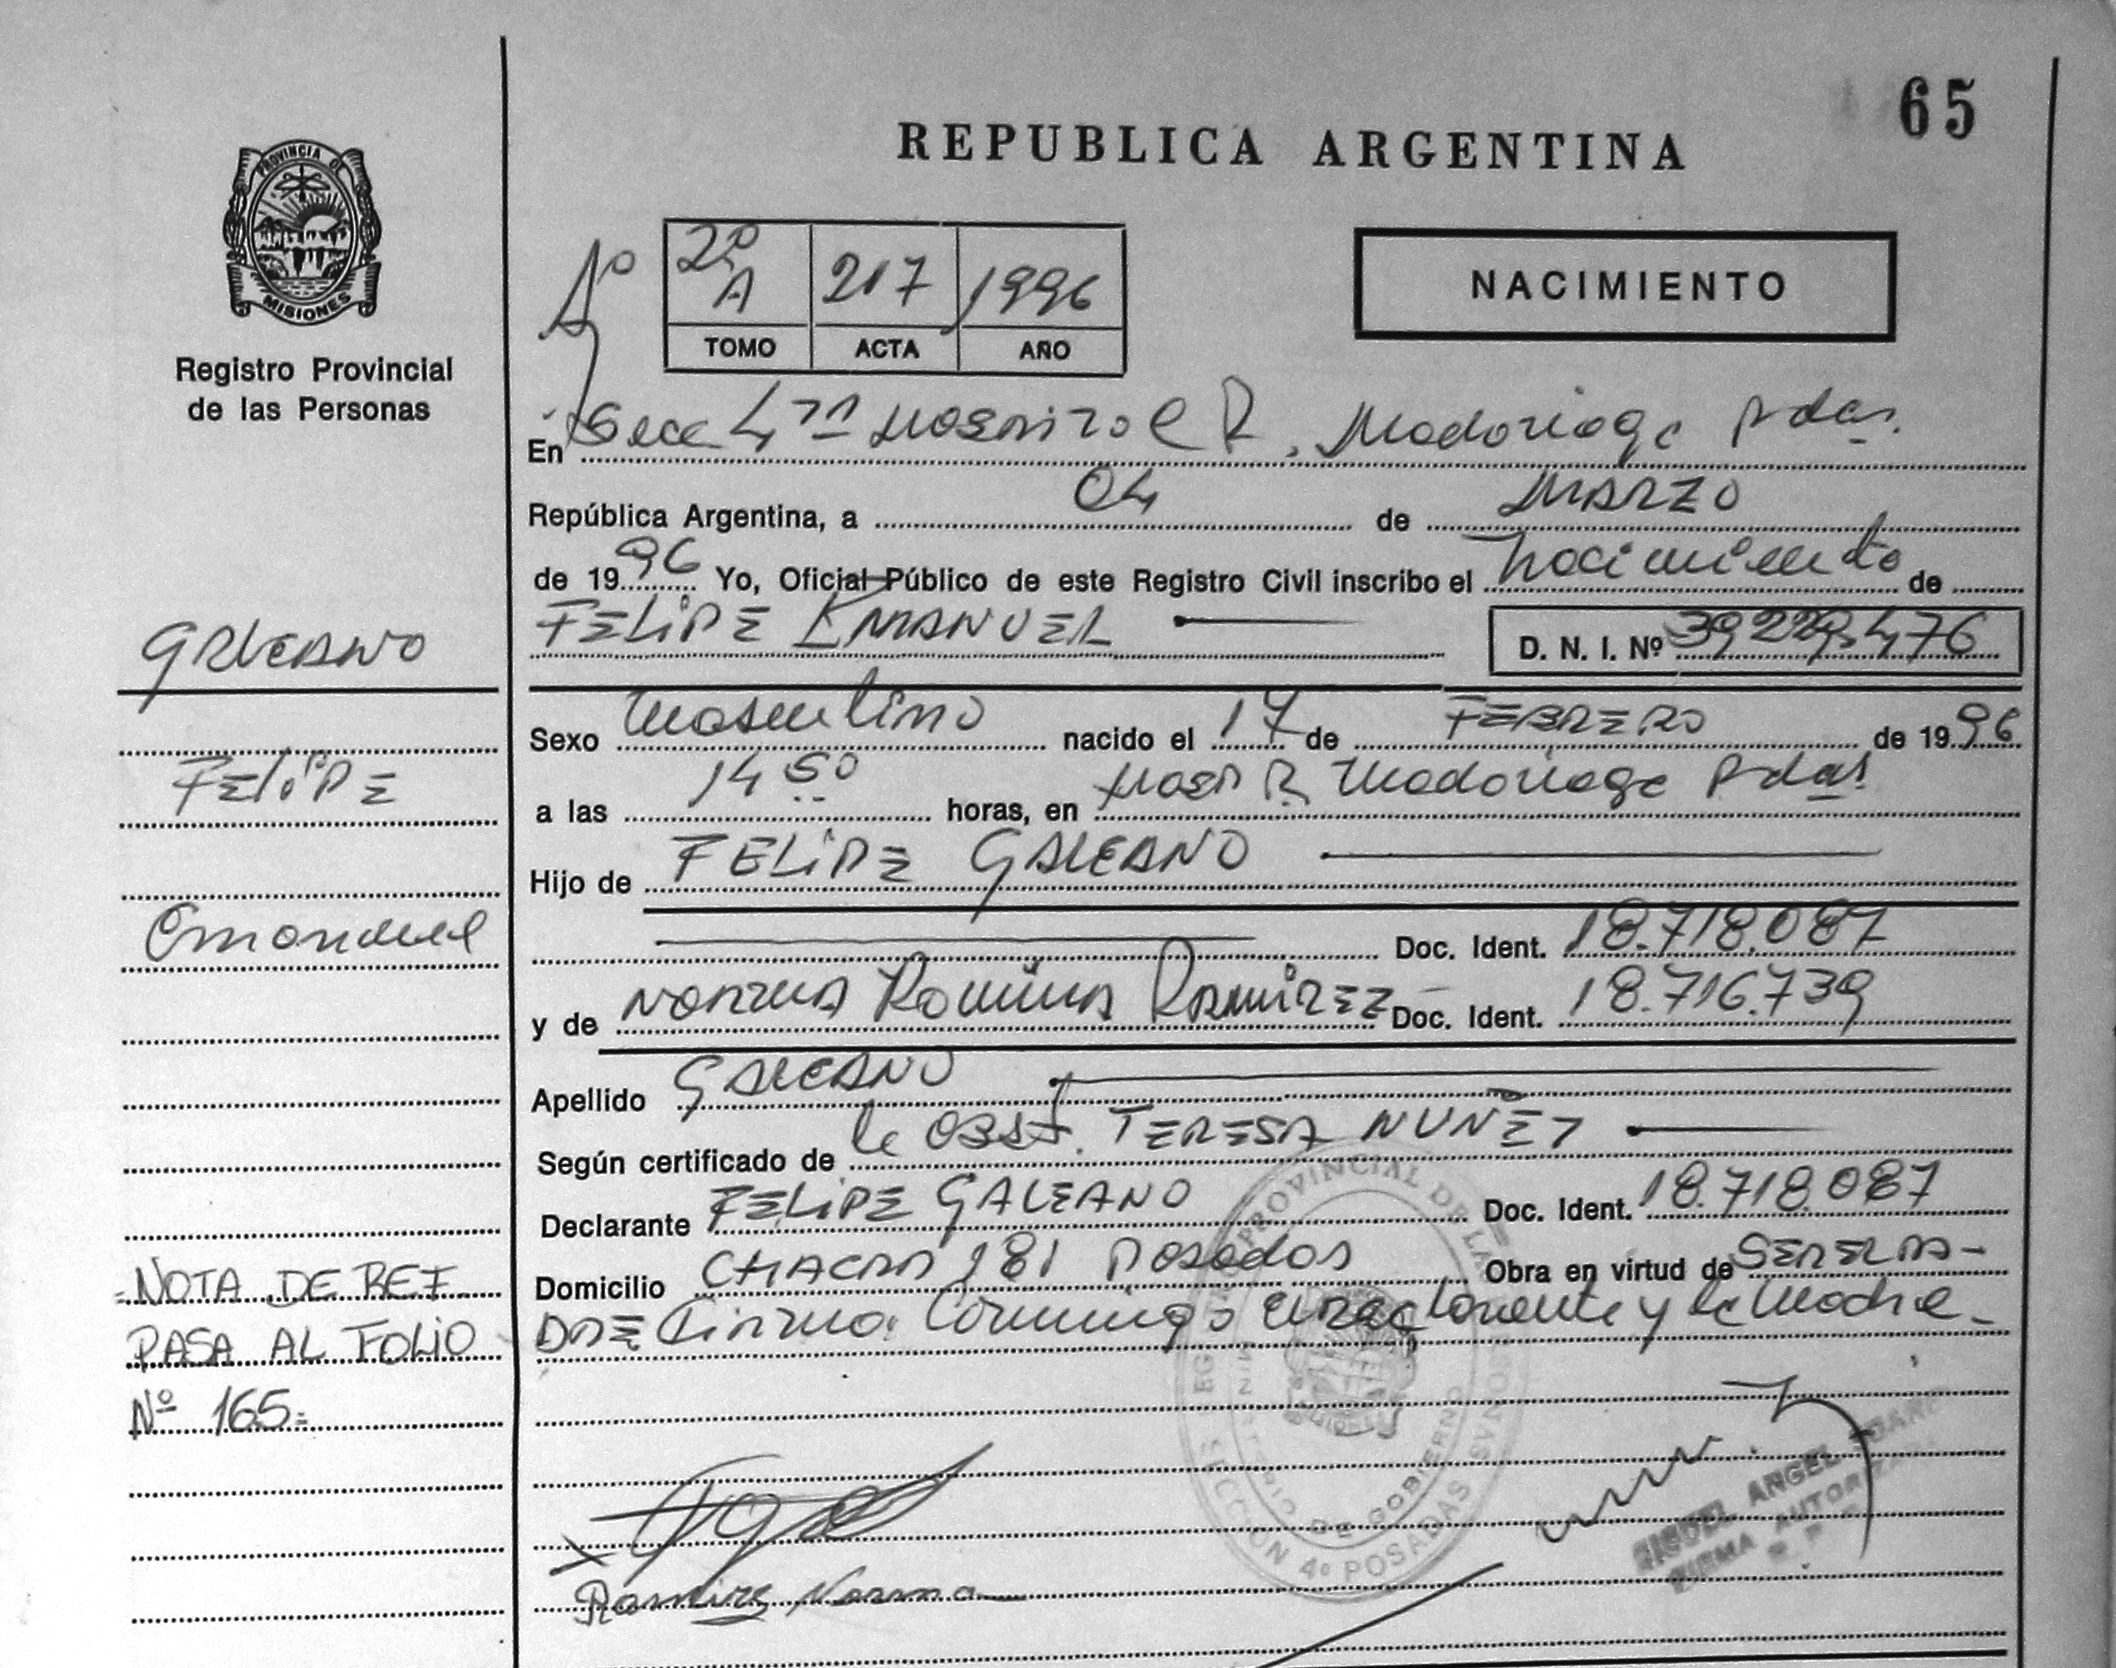 65
REPUBLICA ARGENTINA
PROVINCIA DE
MISIONES
Registro Provincial
de las Personas
2º A 217 1996
TOMO ACTA AÑO
NACIMIENTO
En Secc 4ta Hospital R. Madariaga Pdas.
República Argentina, a 04 de MARZO
de 1996 Yo, Oficial Público de este Registro Civil inscribo el Nacimiento de
FELIPE EMANUEL D. N. I. Nº 39.229.476
GALEANO
Sexo Masculino nacido el 17 de FEBRERO de 1996
FELIPE
a las 14 50 horas, en HOSP R. Madariaga Pdas
Hijo de FELIPE GALEANO
Emanuel
Doc. Ident. 18.718.087
y de NORMA ROMINA RAMIREZ Doc. Ident. 18.716.739
Apellido GALEANO
Según certificado de la OBST. TERESA NUÑEZ
Declarante FELIPE GALEANO Doc. Ident. 18.718.087
Domicilio CHACRA 181 Posadas Obra en virtud de SER EL PA-
DRE Firma Conmigo el declarante y la Madre
=NOTA DE REF
PASA AL FOLIO
Nº 165=
PROVINCIAL DE LAS
MINISTERIO DE GOBIERNO
SECCION 4º POSADAS
MIGUEL ANGEL
FIRMA AUTORIZADA
Ramirez Norma